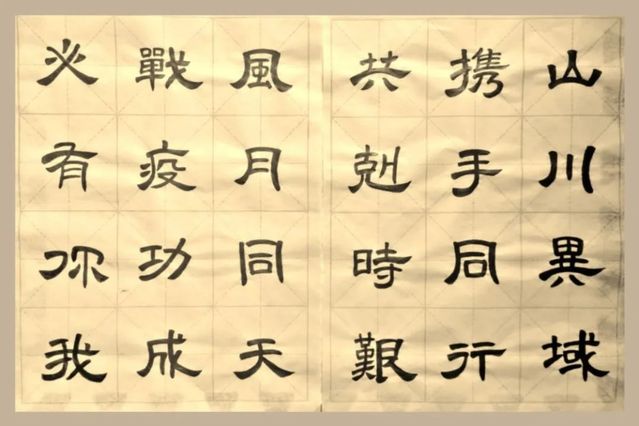 山川異域
携手同行
共剋時艱
風月同天
戰疫功成
必有你我